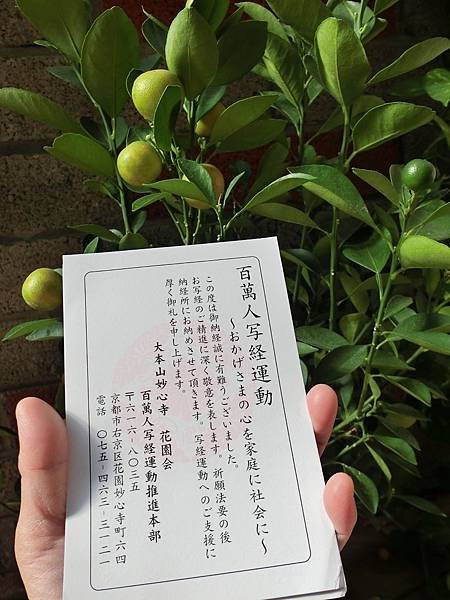 百萬人写経運動
～おかげさまの心を家庭に社会に～
この度は御納経誠に有難うございました。
お写経のご精進に深く敬意を表します。祈願法要の後
納経所にお納めさせて頂きます。写経運動へのご支援に
厚く御礼を申し上げます。
大本山妙心寺 花園会
百萬人写経運動推進本部
〒六一六－八〇三五
京都市右京区花園妙心寺町六四
電話 〇七五－四六三－三一二一